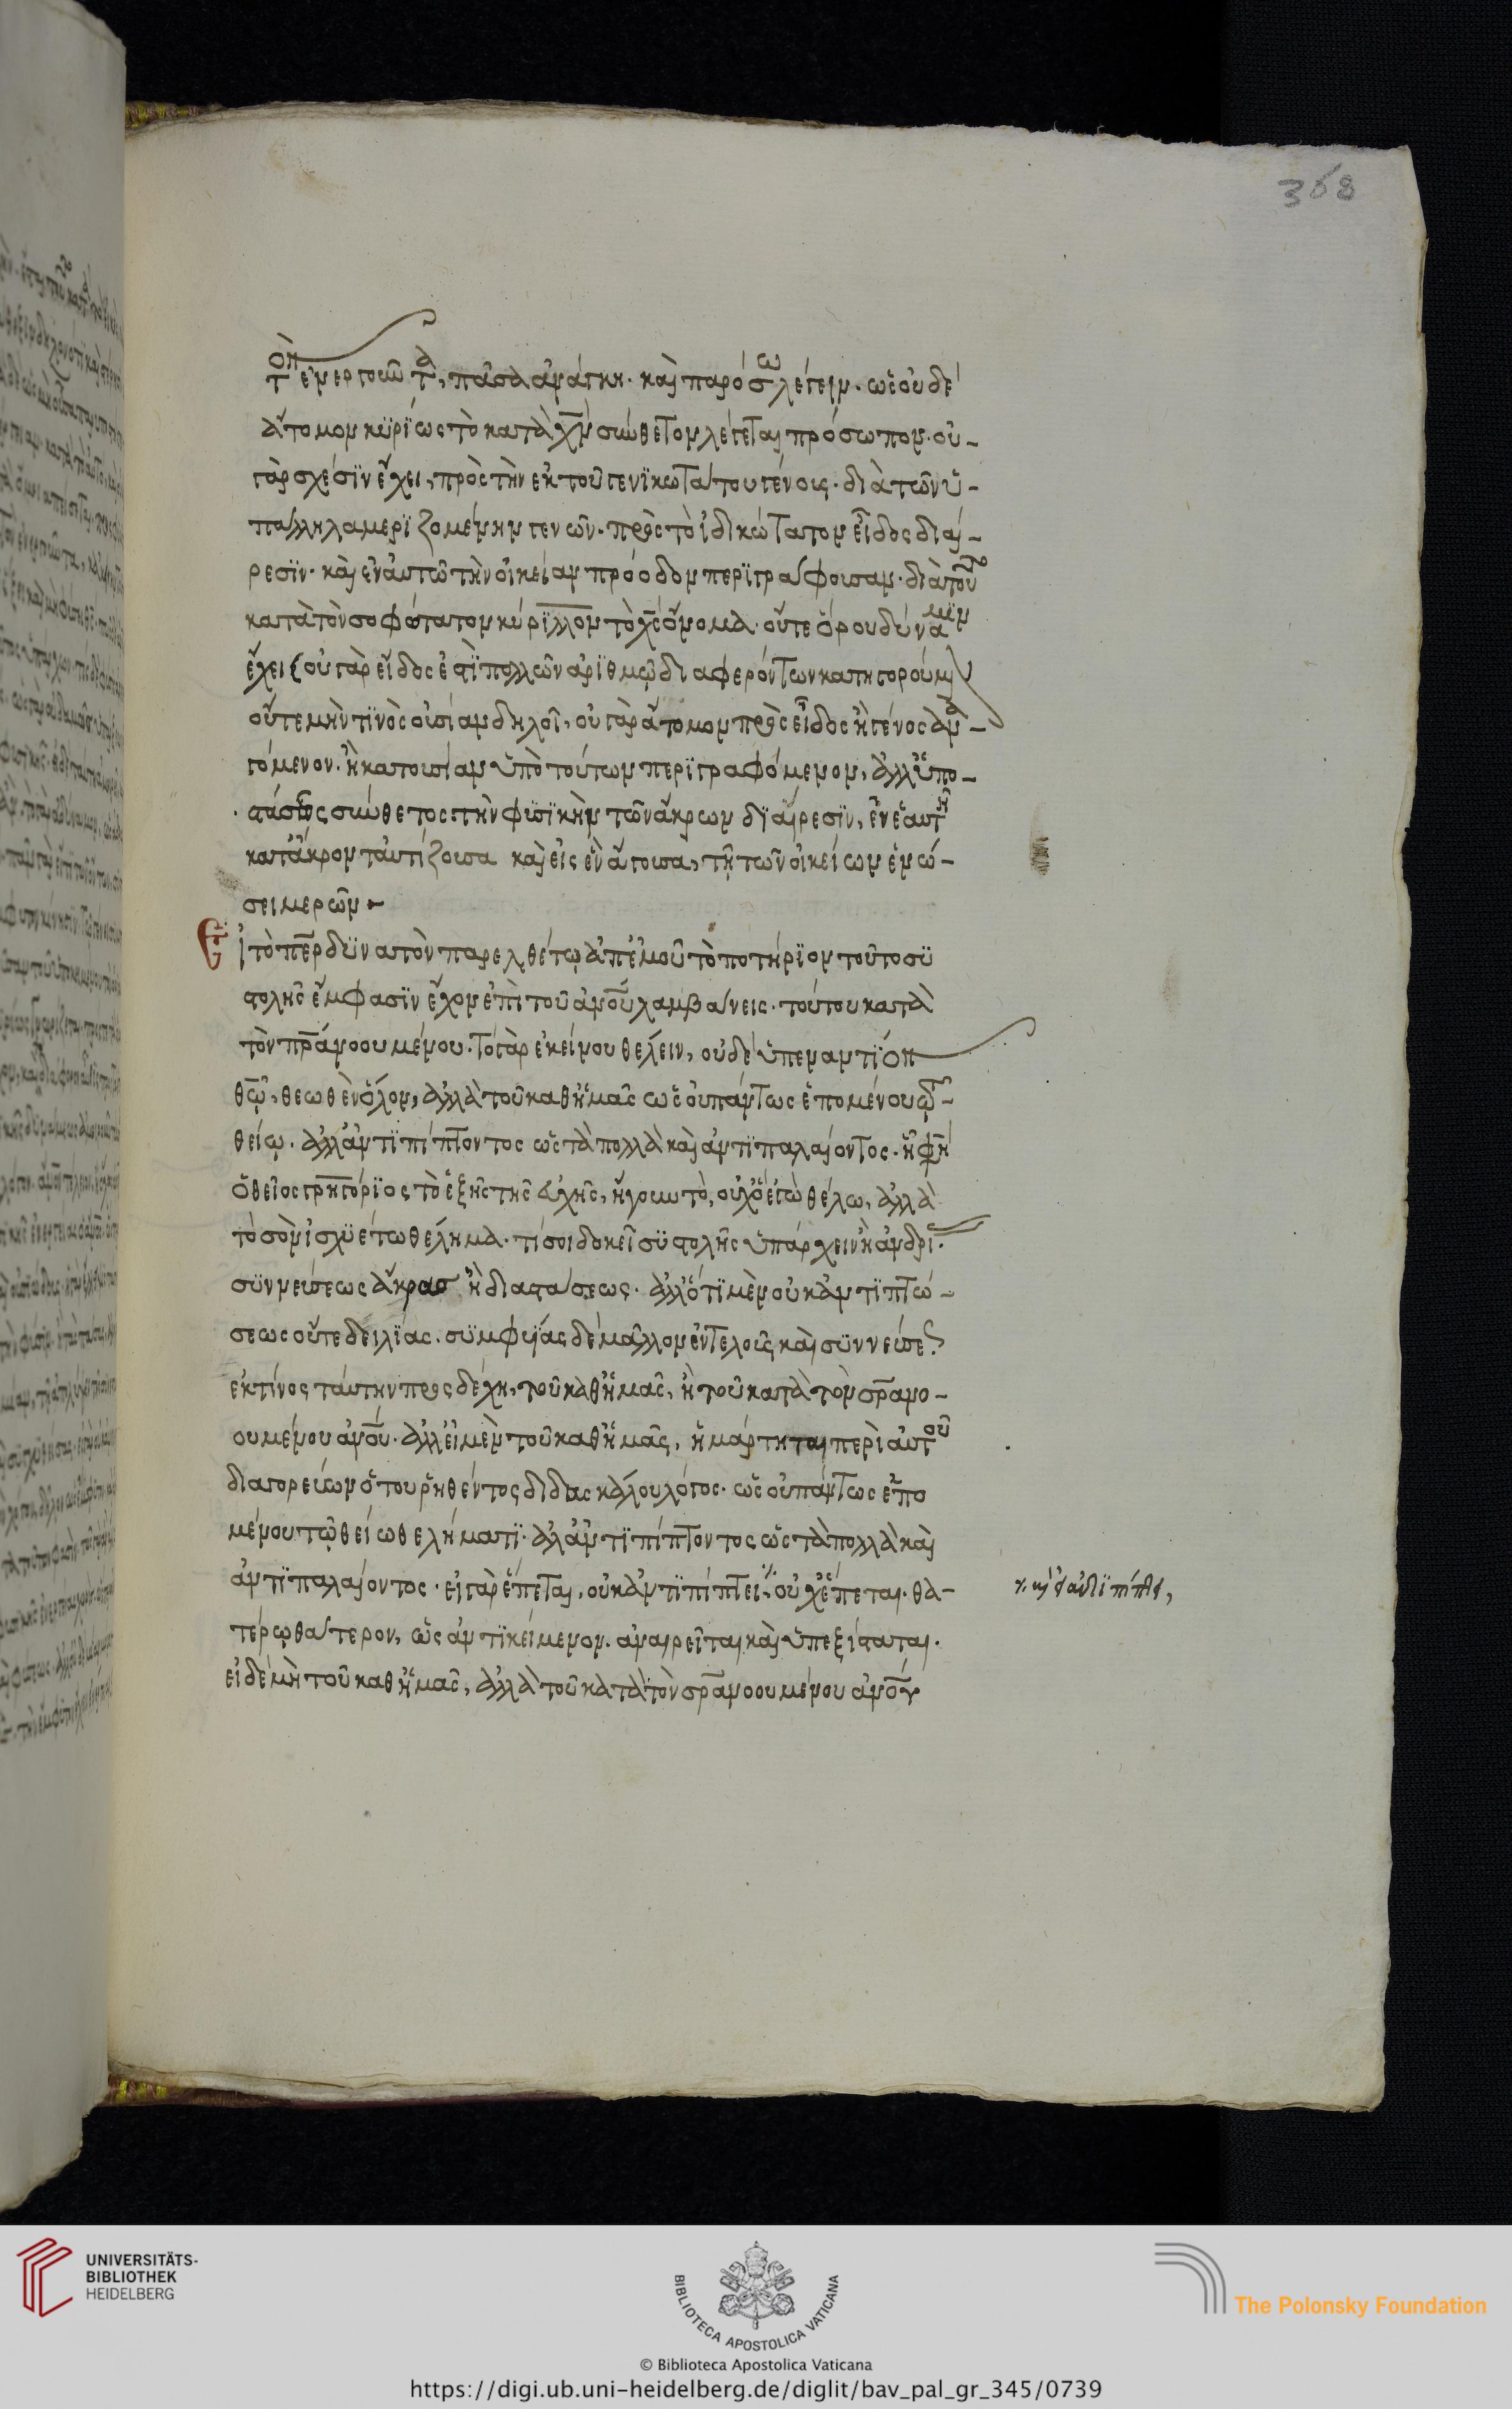 368
τὸν ἐνεργοῦντα, πᾶσα ἀνάγκη· καὶ παρόσω λέγειν· ὡς οὐδὲ
ἄτομον κυρίως τὸ κατὰ χν σύνθετον λέγεται πρόσωπον· οὐ-
γὰρ σχέσϊν ἔχει, πρὸς τὴν ἐκ τοῦ γενϊκωτάτου γένους· διὰ τῶν ὑ-
παλλήλα μερϊζομένην γενῶν· πρὸς τὸ ἰδικώτατον εἶδος διαί-
ρεσϊν· καὶ ἐν αὐτῶ τὴν οἰκείαν πρόοδον περϊγράφουσαν· διὰ τοῦτο
κατὰ τὸν σοφώτατον κύρϊλλον τὸ χς ὄνομα· οὔτε ὅρου δύναμϊν
ἔχει (οὐ γὰρ εἶδος ἐστϊ πολλῶν ἀρϊθμῷ διαφερόντων κατηγορούμ
οὔτε μὴν τϊνὸς οὐσίαν δηλοῖ, οὐ γὰρ ἄτομον πρὸς εἶδος ἢ γένος ἀνα-
γόμενον· ἢ κατουσίαν ὑπὸ τούτων περϊγραφόμενον, ἀλλ' ὑπο-
στάσεως σύνθετος· τὴν φυσϊκὴν τῶν ἄκρων δϊαίρεσϊν, ἐν ἑαυτῆ
κατ' ἄκρον ταυτίζουσα καὶ εἰς ἓν ἄγουσα, τῆ τῶν οἰκείων ἑνώ-
σει μερῶν
Εἰ τὸ περ δυνατὸν παρελθέτω ἀπ' ἐμοῦ τὸ ποτήρϊον τοῦτο συ
στολῆς ἔμφασϊν ἔχον ἐπὶ τοῦ ἀνου λαμβάνεις· τούτου κατὰ
τὸν πρα νοουμένου· τὸ γὰρ ἐκείνου θέλειν, οὐδὲ ὑπεναντϊον
θω, θεωθὲν ὅλον, ἀλλὰ τοῦ καθ' ἡμᾶς ὡς οὐ πάντως ἑπομένου τῷ
θείῳ· ἀλλ' ἀντϊπίπτοντος ὡς τὰ πολλὰ καὶ ἀντϊπαλαίοντος· ἧ φη
ὁ θεῖος γρηγόρϊος τὸ ἑξῆς τῆς εὐχῆς, ἤγουν τὸ, οὐχ' ὃ ἐγὼ θέλω, ἀλλὰ
τὸ σὸν ἰσχυέτω θέλημα· τί σοι δοκεῖ συστολῆς ὑπάρχειν ἢ ἀνδρί·
συννεύσεως ἄκρας ἢ διαστάσεως· ἀλλ' ὅτι μὲν οὐκ ἀντϊπτώ-
σεως οὔτε δειλίας· συμφυΐας δὲ μᾶλλον ἐντελοῦς καὶ συννεύσε
ἐκ τίνος ταύτην προς δέχη, τοῦ καθ' ἡμᾶς, ἢ τοῦ κατὰ τὸν σρα νο-
ουμένου ἀνου· ἀλλ' εἰ μὲν τοῦ καθ' ἡμᾶς, ἡμάρτηται περὶ αὐτοῦ
διαγορεύων ὁ τοῦ ῥηθέντος διδασκάλου λόγος· ὡς οὐ πάντως ἑπο
μένου τῶ θείω θελήματϊ· ἀλλ' ἀντϊπίπτοντος ὡς τὰ πολλὰ καὶ
ἀντϊπαλαίοντος· εἰ γὰρ ἕπεται, οὐκ ἀντϊπίπτει· οὐχ' ἕπεται· θα-
τέρῳ θάτερον, ὡς ἀντϊκείμενον· ἀναιρεῖται καὶ ὑπεξίσταται·
εἰ δὲ μὴ τοῦ καθ' ἡμᾶς, ἀλλὰ τοῦ κατὰ τὸν σρα νοουμένου ἀνου
καὶ εἰ ἀντϊπίπτει,
UNIVERSITÄTS-
BIBLIOTHEK
HEIDELBERG
BIBLIOTECA APOSTOLICA VATICANA
The Polonsky Foundation
© Biblioteca Apostolica Vaticana
https://digi.ub.uni-heidelberg.de/diglit/bav_pal_gr_345/0739